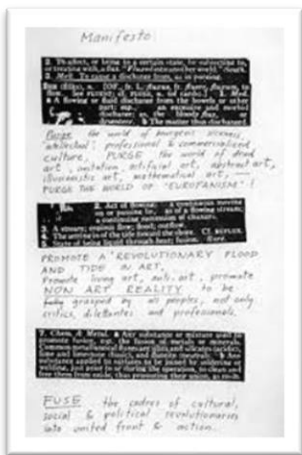 Manifesto:
2. To affect, or bring to a certain state, by subjecting to,
or treating with, a flux. "Fluxed into another world." South.
3. Med. To cause a discharge from, as in purging.
flux (flŭks), n. [OF., fr. L. fluxus, fr. fluere, fluxum, to
flow. 1. Med.
a A flowing or fluid discharge from the bowels or other
part; esp., an excessive and morbid
discharge; as, the bloody flux, or
dysentery. b The matter thus discharged.
Purge the world of bourgeois sickness,
"intellectual", professional & commercialized
culture, PURGE the world of dead
art, imitation, artificial art, abstract art,
illusionistic art, mathematical art, —
PURGE THE WORLD OF "EUROPANISM" !
2. Act of flowing: a continuous moving
on or passing by, as of a flowing stream;
a continuing succession of changes.
3. A stream; copious flow; flood; outflow.
4. The setting in of the tide toward the shore.
5. State of being liquid through heat; fusion. Rare.
PROMOTE A REVOLUTIONARY FLOOD
AND TIDE IN ART,
Promote living art, anti-art, promote
NON ART REALITY to be
grasped by all peoples, not only
critics, dilettantes and professionals.
7. Chem. & Metal. a Any substance or mixture used to
promote fusion, esp. the fusion of metals or minerals.
Common metallurgical fluxes are silica and silicates (acidic),
lime and limestone (basic), and fluorite (neutral). b Any
substance applied to surfaces to be joined by soldering or
welding, just prior to or during the operation, to clean and
free them from oxide, thus promoting their union, as rosin.
FUSE the cadres of cultural,
social & political revolutionaries
into united front & action.